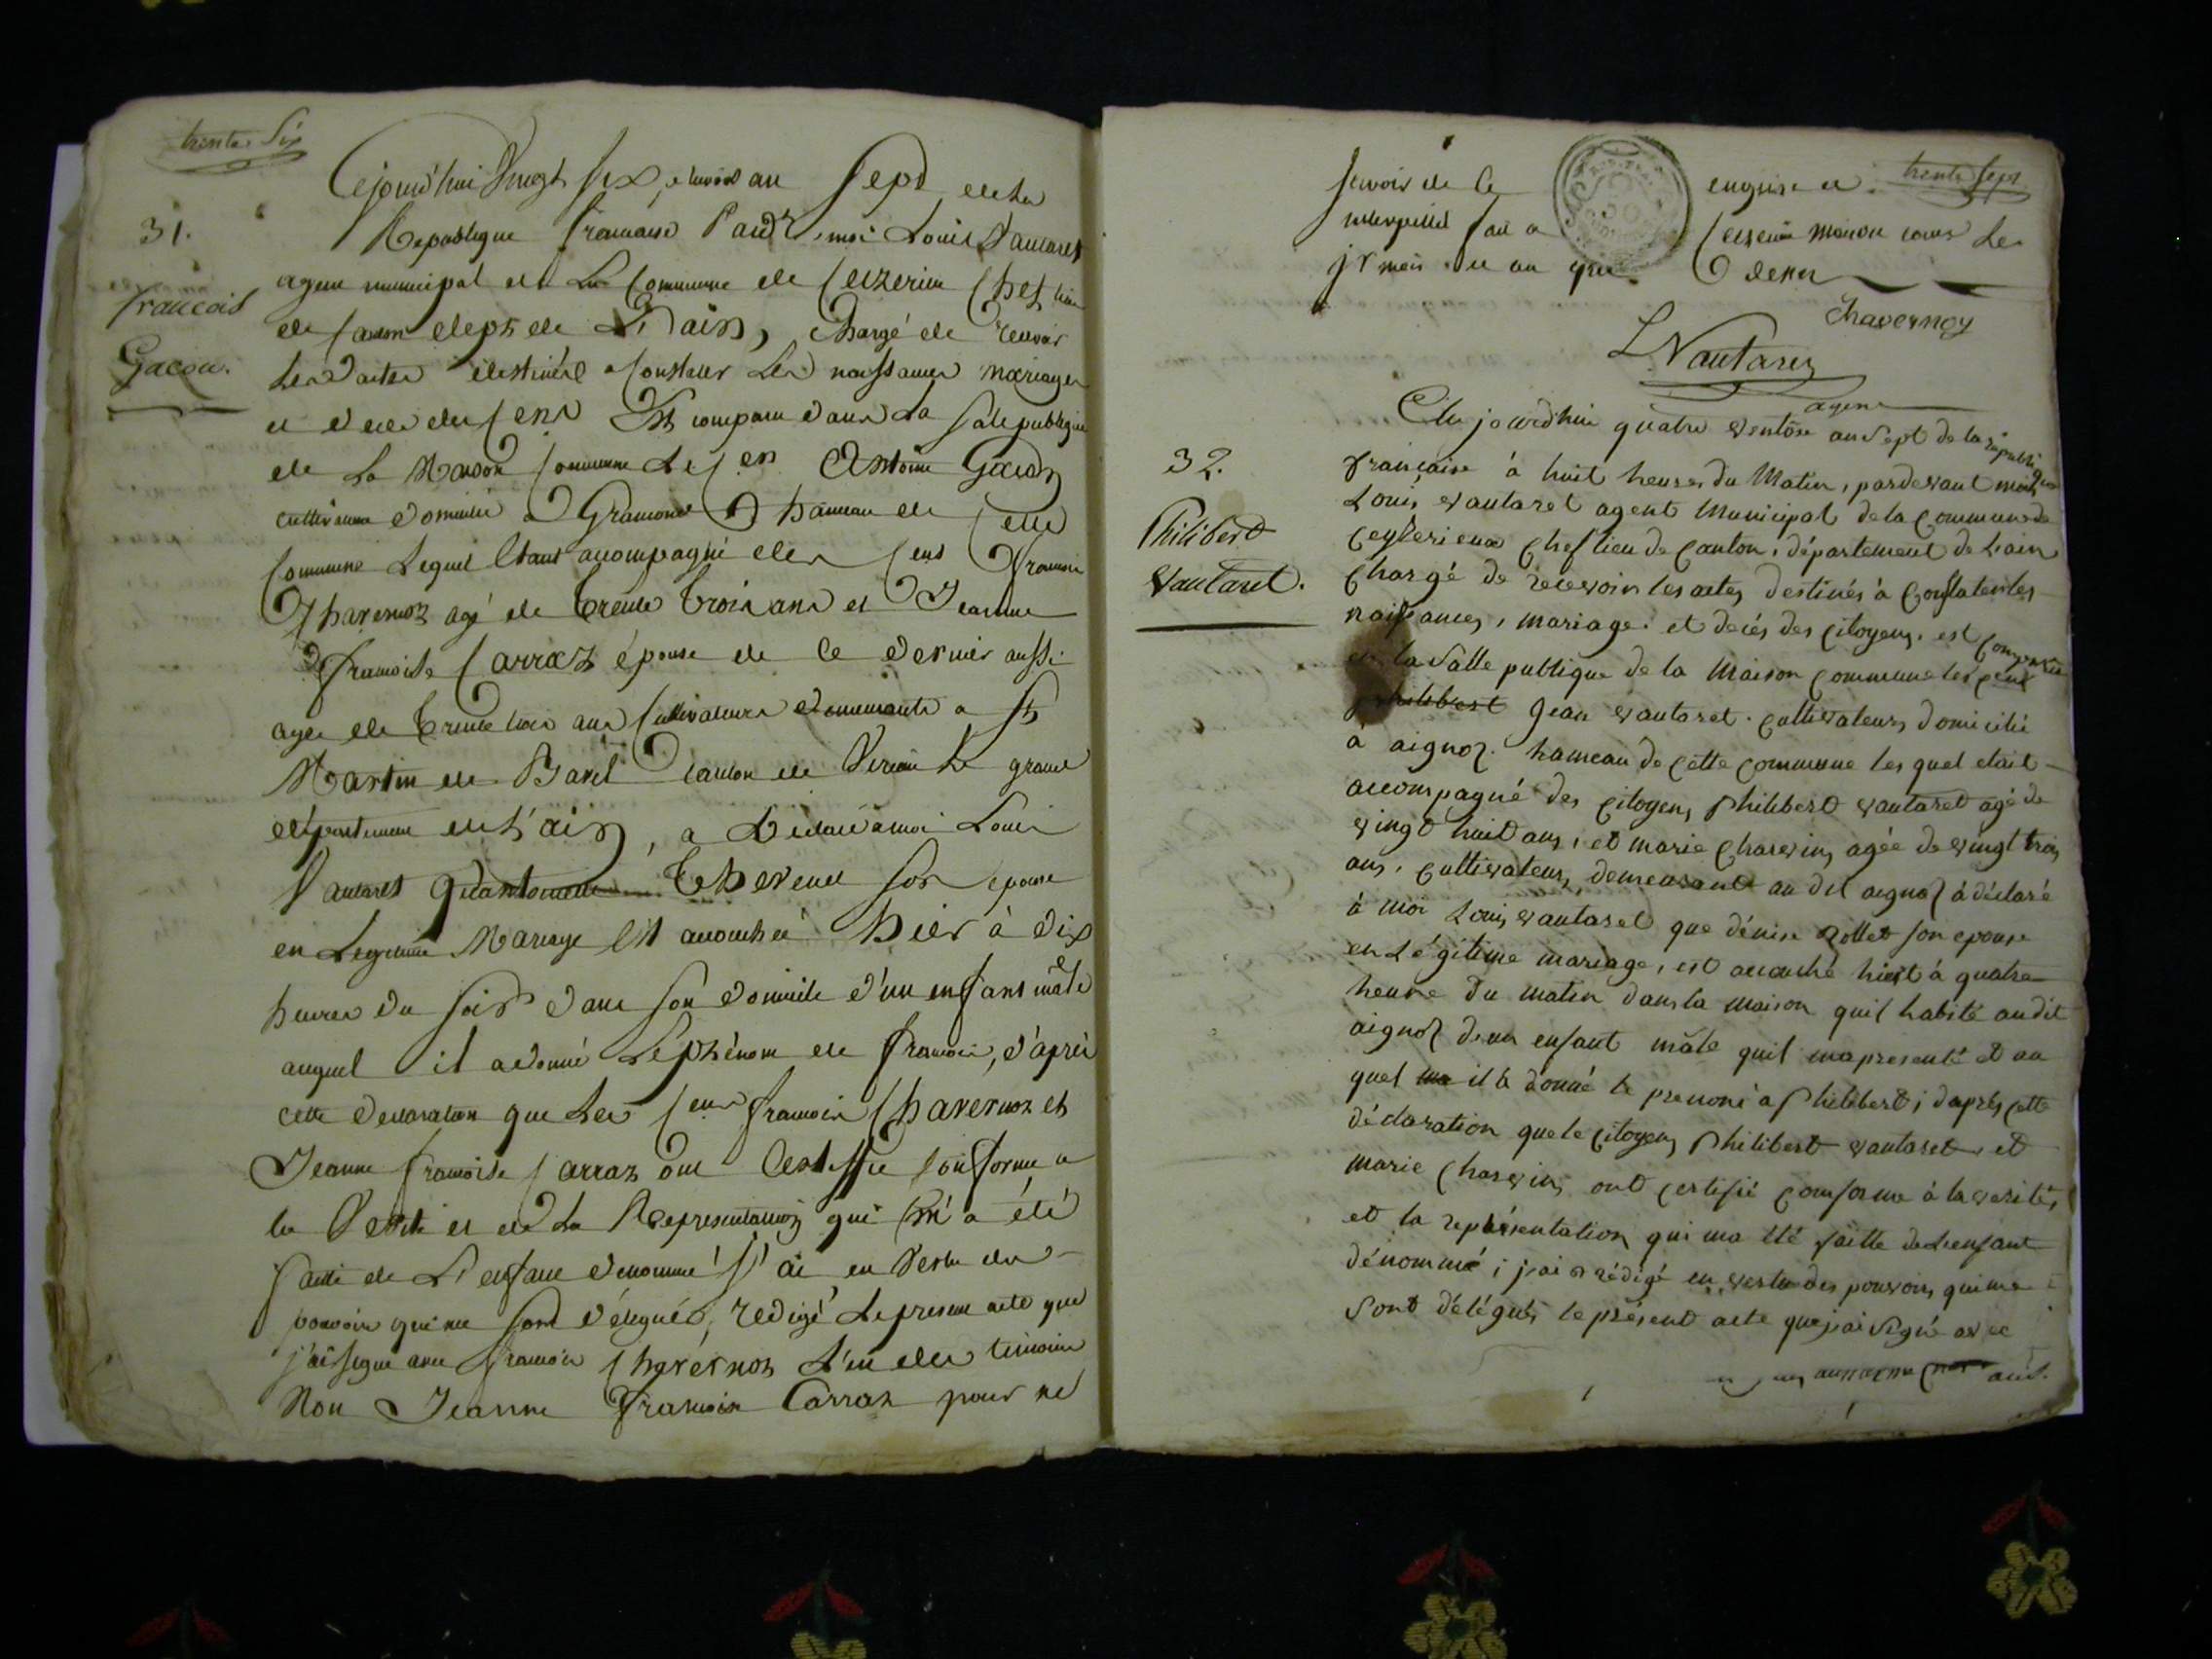 trente Six
31.
francois
Gacon.
Cejourd'hui Vingt six pluviose an Sept de la
Republique francaise Pardt moi Louis Vautaret
agent municipal de La Commune de Ceizerieu Chef lieu
de canton dept de L'ain, chargé de recevoir
Les actes destinés a Constater Les naissances mariages
et decès des Cens Est comparu dans La Sale publique
de La Maison Commune Le Cen Antoine Gacon
cultivateur domicilié a Gramond hameau de Cette
Commune Lequel Etant acompagné des Cens francois
Chavernoz agé de trente trois ans et Jeanne
francoise Carraz épouse de Ce dernier aussi
agee de trente trois ans Cultivateurs demeurants a St
Martin de Bavel canton de Virieu Le grand
département de L'ain, a Déclaré a moi Louis
Vautaret qu'antoinette Thevenet son epouse
en Legitime Mariage Est accouchée hier à dix
heures du soir dans son domicile d'un enfant mâle
auquel il a donné Le prénom de francois, d'après
cette declaration que Les Cens francois Chavernoz et
Jeanne francoise Carraz ont Certiffié Conforme a
la Verité et de La Representation qui m'a été
faitte de L'enfant denommé J'ai en Vertu des
pouvoirs qui me sont délegués, redigé Le present acte que
j'ai signé avec francois Chavernoz L'un des temoins
Non Jeanne francoise Carraz pour ne
trente sept
Savoir de Ce enquise et
interpellée fait a Ceiserieu maison comune Les
jr mois et an que dessus
Chavernoz
L Vautaret
agent
32.
Philibert
Vautaret.
Cejourd'hui quatre ventôse an Sept de la république
française à huit heures du Matin, pardevant moi
Louis vautaret agent Municipal de la Commune de
Ceyserieux Chef lieu de Canton, département de L'ain
Chargé de recevoir les actes destinés à Constater les
naissances, mariage. et décés des Citoyens. est Comparu
en la Salle publique de la Maison Commune les Cen
philibert Jean vautaret. Cultivateurs domicilié
à aignoz. hameau de Cette Commune les quel etait
accompagné des Citoyens Philibert vautaret agé de
vingt huit ans, et marie Charvin agée de vingt trois
ans, Cultivateurs, demeurant au dit aignoz à déclaré
à moi Louis vautaret que dénise Rollet son epouse
en Légitime mariage, est accouché hiert à quatre
heure du matin dans la maison quil habite audit
aignoz d'un enfant mâle quil ma presenté et au
quel il à donné le prenom à Philibert; d'aprés cette
déclaration que le Citoyen Philibert vautaret et
marie Charvin ont Certifié Conforme à la verité,
et la représentation qui ma été faitte de L'enfant
dénommé; j'ai rédigé en vertu des pouvoirs qui me
Sont délégués le présent acte que j'ai Signé avec